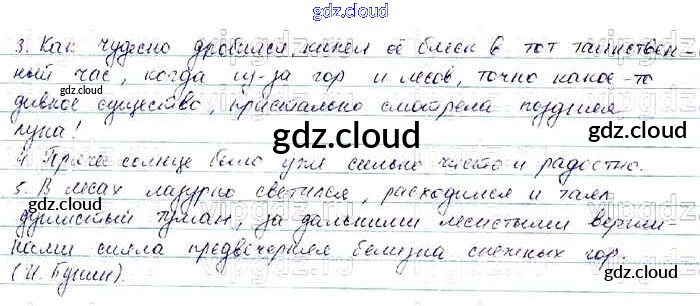 gdz.cloud
3. Как чудесно дробился, кипел её блеск в тот таинствен-
ный час, когда из-за гор и лесов, точно какое-то
дивное существо, пристально смотрела поздняя
луна!
4. Прячем солнце было уже сильно чисто и радостно.
5. В лесах лазурно светился, расходился и таял
душистый туман, за дальними лесистыми верши-
нами сияла предвечерняя белизна снежных гор.
(И. Бунин).
gdz.cloud
gdz.cloud
gdz.cloud
gdz.cloud
gdz.cloud
gdz.cloud